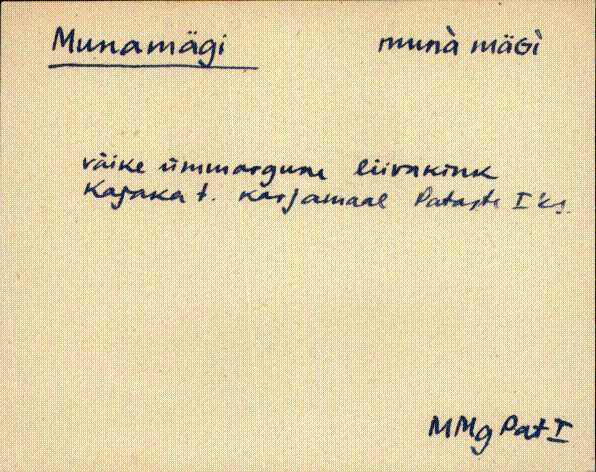 Munamägi
munà mäGì
väike ümmargune liivakink
Kajaka t. karjamaal Pataste I ks.
MMg Pat I